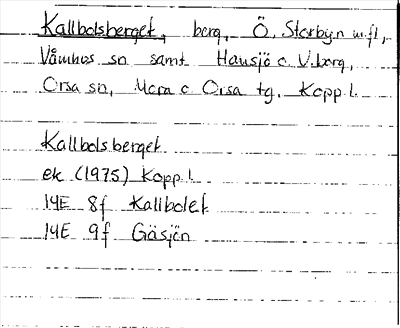 Kallbolsberget, berg, Ö. Storbyn m.fl,
Våmhus sn samt Hansjö o V.berg,
Orsa sn, Mora o Orsa tg. Kopp.l.
Kallbolsberget
ek (1975) Kopp.l.
14E 8f Kallbolet
14E 9f Gäsjön